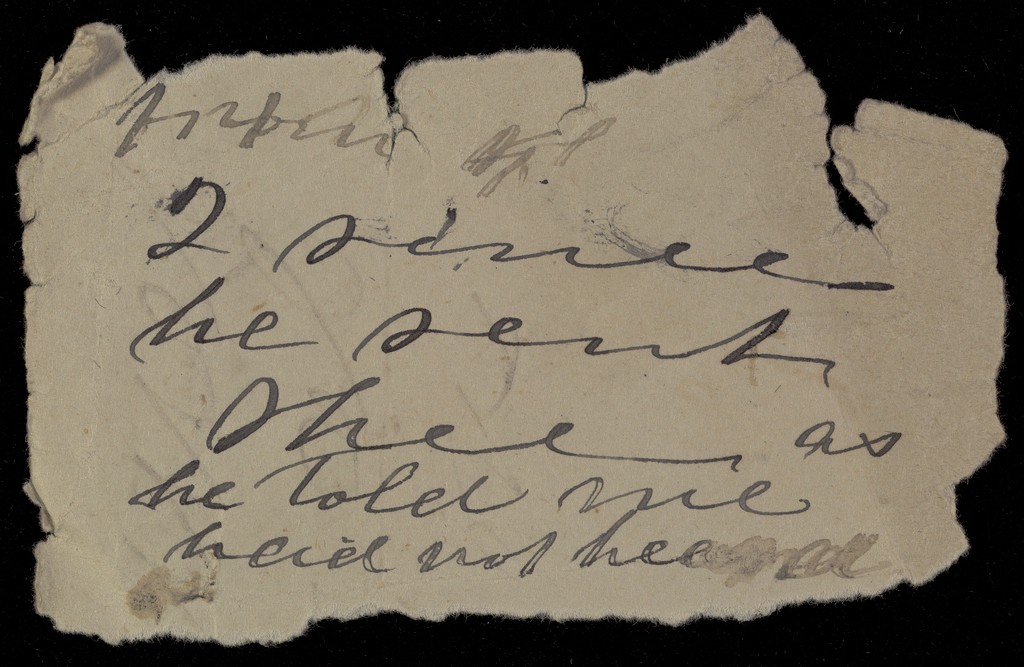 2 since
he sent
Shee as
he told me
haid not hee